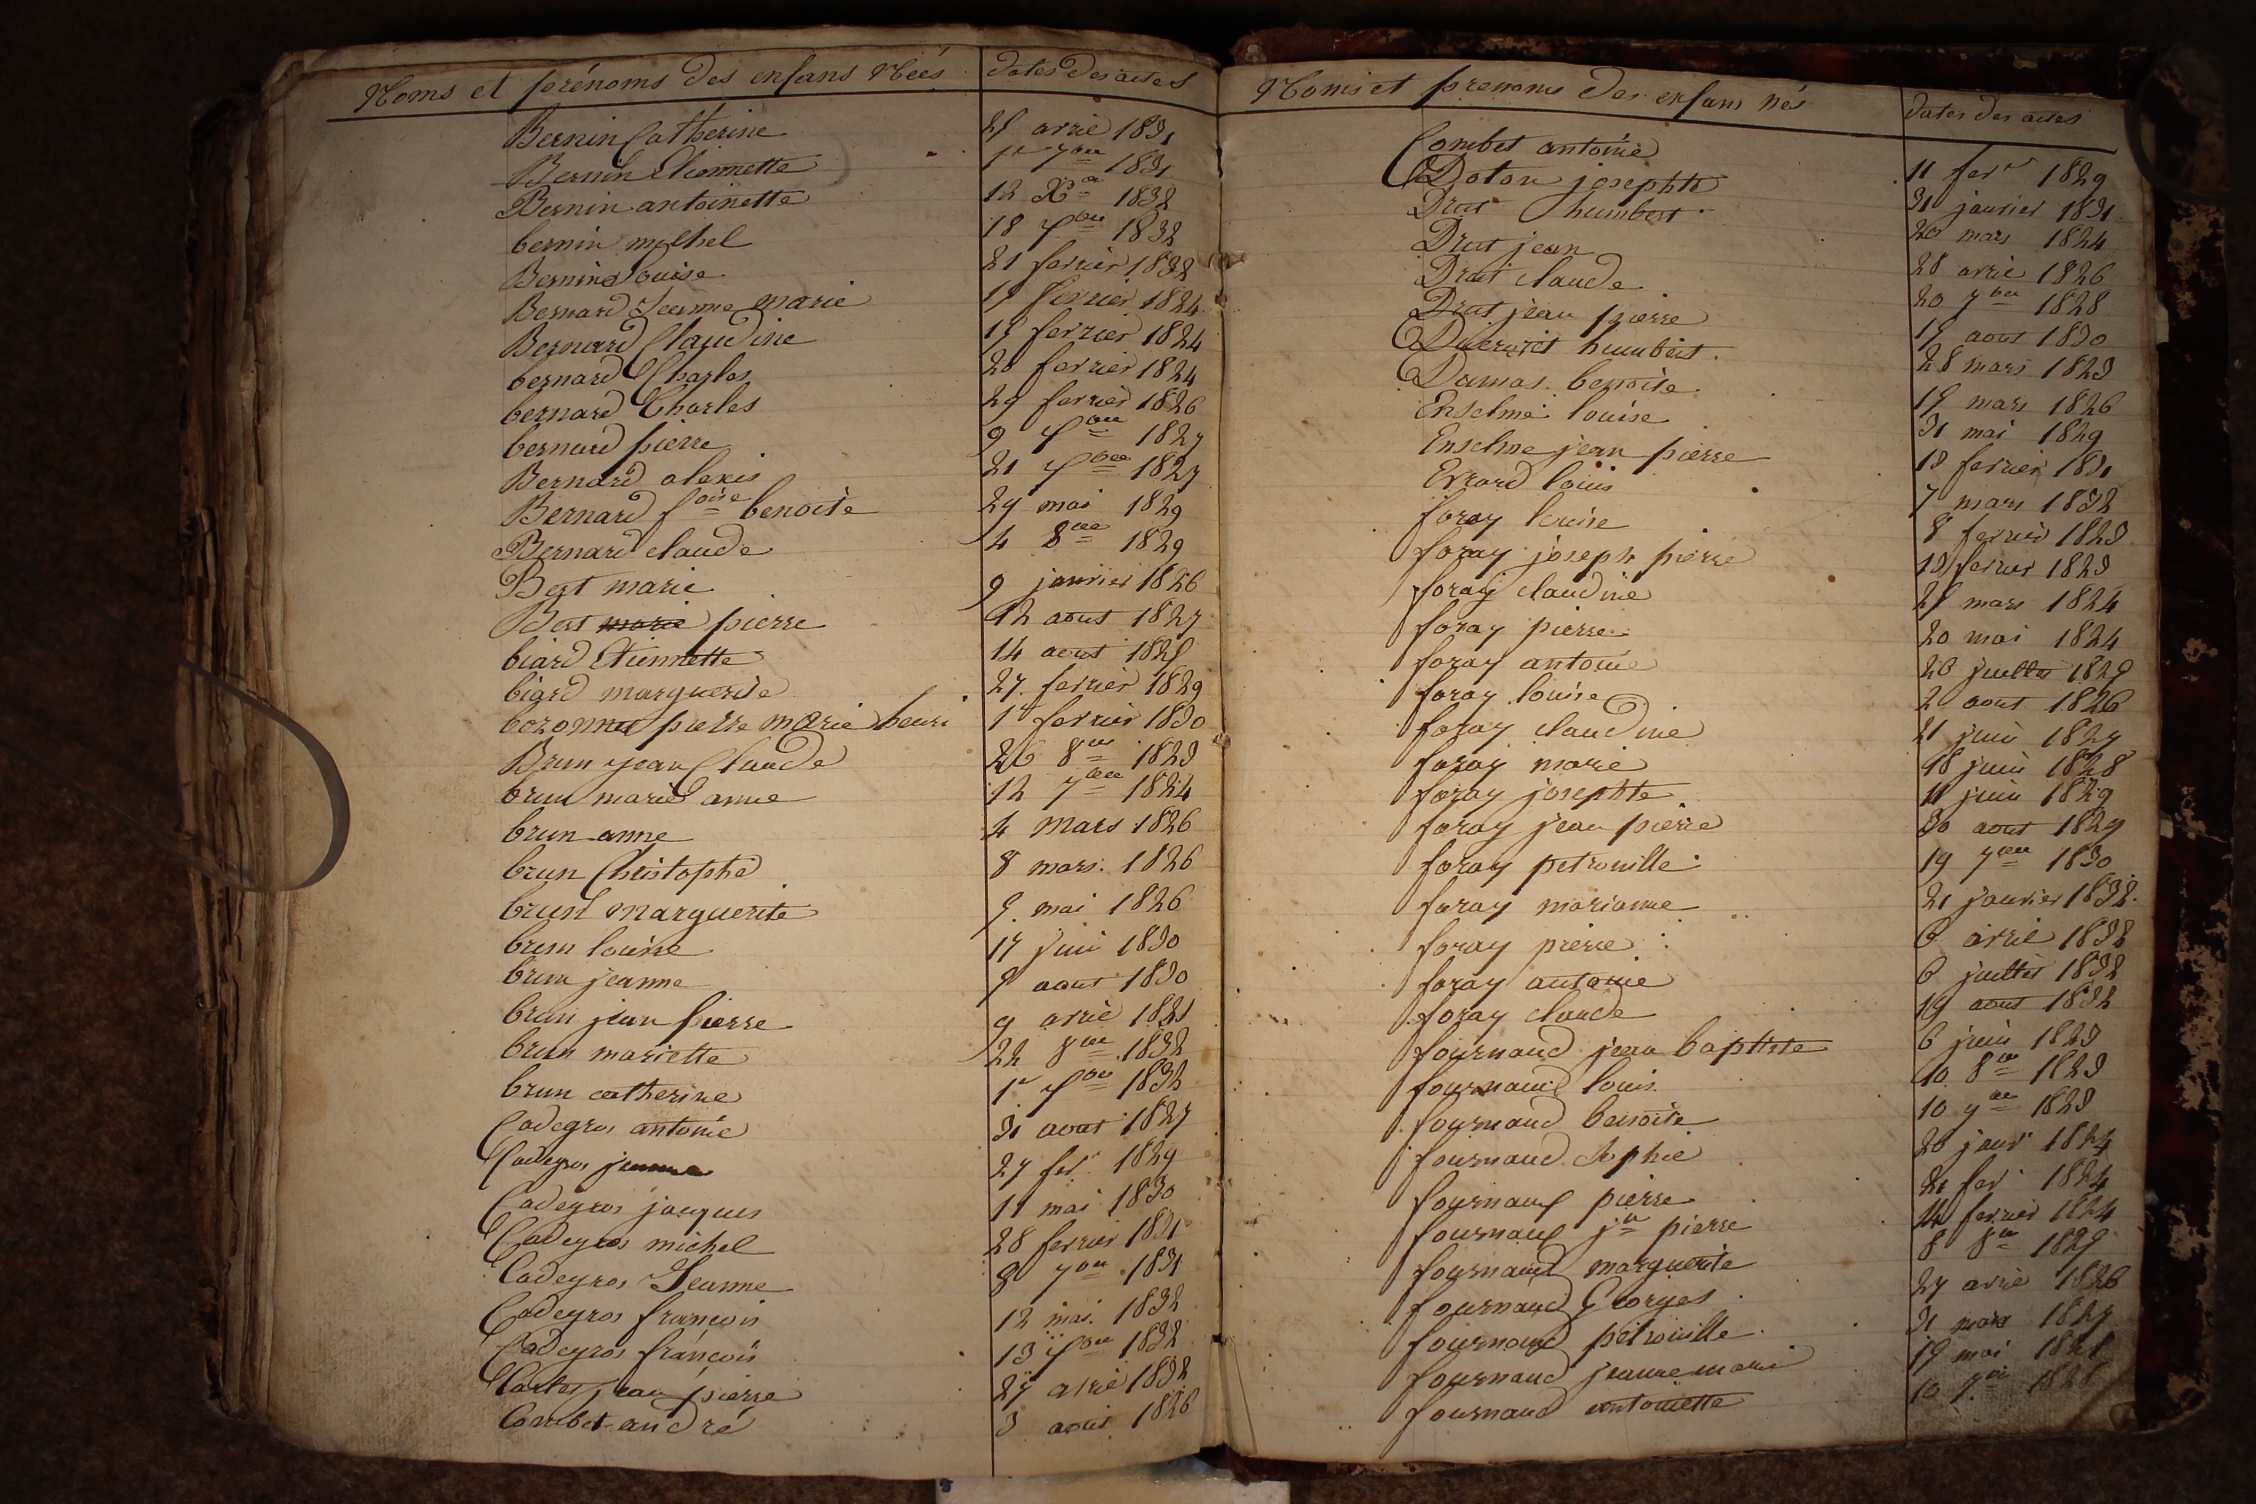 Noms et prénoms des enfans Nées Dates des actes
Bernin Catherine 25 avril 1831
Bernin Etiennette 1er 7bre 1831
Bernin antoinette 12 Xbre 1832
bernin michel 18 9bre 1832
Bernin Louise 21 fevrier 1832
Bernard Jeanne marie 17 fevrier 1824
Bernard Claudine 19 fevrier 1824
bernard Charles 20 fevrier 1824
bernard Charles 29 fevrier 1826
bernard pierre 9 9bre 1827
Bernard alexis 21 9bre 1827
Bernard foise benoite 29 mai 1829
Bernard claude 4 8bre 1829
Bert marie 9 janvier 1826
Bert marie pierre 12 aout 1827
biard Etiennette 14 aout 1825
bigrd marguerite 27 fevrier 1829
pierre marie henri 1er fevrier 1830
Brun jean Claude 26 8bre 1823
brun marie anne 12 7bre 1824
brun anne 4 mars 1826
brun Christophe 8 mars 1826
brun marguerite 9 mai 1826
brun louise 17 juin 1830
brun jeanne 9 aout 1830
brun jean pierre 9 avril 1831
brun mariette 22 8bre 1832
brun catherine 1er 9bre 1832
Cadegros antoine 31 aout 1827
Cadegros jeanne 27 fer 1829
Cadegros jacques 11 mai 1830
Cadegros michel 28 fevrier 1831
Cadegros Jeanne 8 7bre 1831
Cadegros francois 12 mai 1832
Cadegros francois 13 9bre 1832
jean pierre 27 avril 1832
Combet andré 3 aout 1826
Noms et prenoms des enfans nés dates des actes
Combet antoine 11 fevr 1829
Doton josephte 31 janvier 1831
Drut humbert 20 mars 1824
Drut jean 28 avril 1826
Drut claude 20 7bre 1828
Drut jean pierre 19 aout 1830
humbert 28 mars 1823
Dumas benoite 19 mars 1826
Enselme louise 31 mai 1829
Enselme jean pierre 18 fevrier 1831
Evrard louis 7 mars 1832
foray louise 8 fevrier 1823
foray joseph pierre 13 fevrier 1823
foray claudine 25 mars 1824
foray pierre 20 mai 1824
foray antoine 26 juillet 1825
foray louise 2 aout 1826
foray claudine 21 juin 1827
foray marie 18 juin 1828
foray josephte 11 juin 1829
foray jean pierre 30 aout 1829
foray petronille 19 7bre 1830
foray marianne 21 janvier 1832
foray pierre 6 avril 1832
foray antoine 6 juillet 1832
foray claude 19 aout 1832
fournaud jean baptiste 6 juin 1823
fournaud louis 10 8bre 1823
fournaud benoite 10 9bre 1823
fournaud Sophie 20 janvr 1824
fournaud pierre 21 fer 1824
fournaud jn pierre 24 fevrier 1824
fournaud marguerite 8 8bre 1825
fournaud Georges 27 avril 1826
fournaud petronille 31 mars 1827
fournaud jeanne marie 19 mai 1828
fournaud antoinette 10 7bre 1828